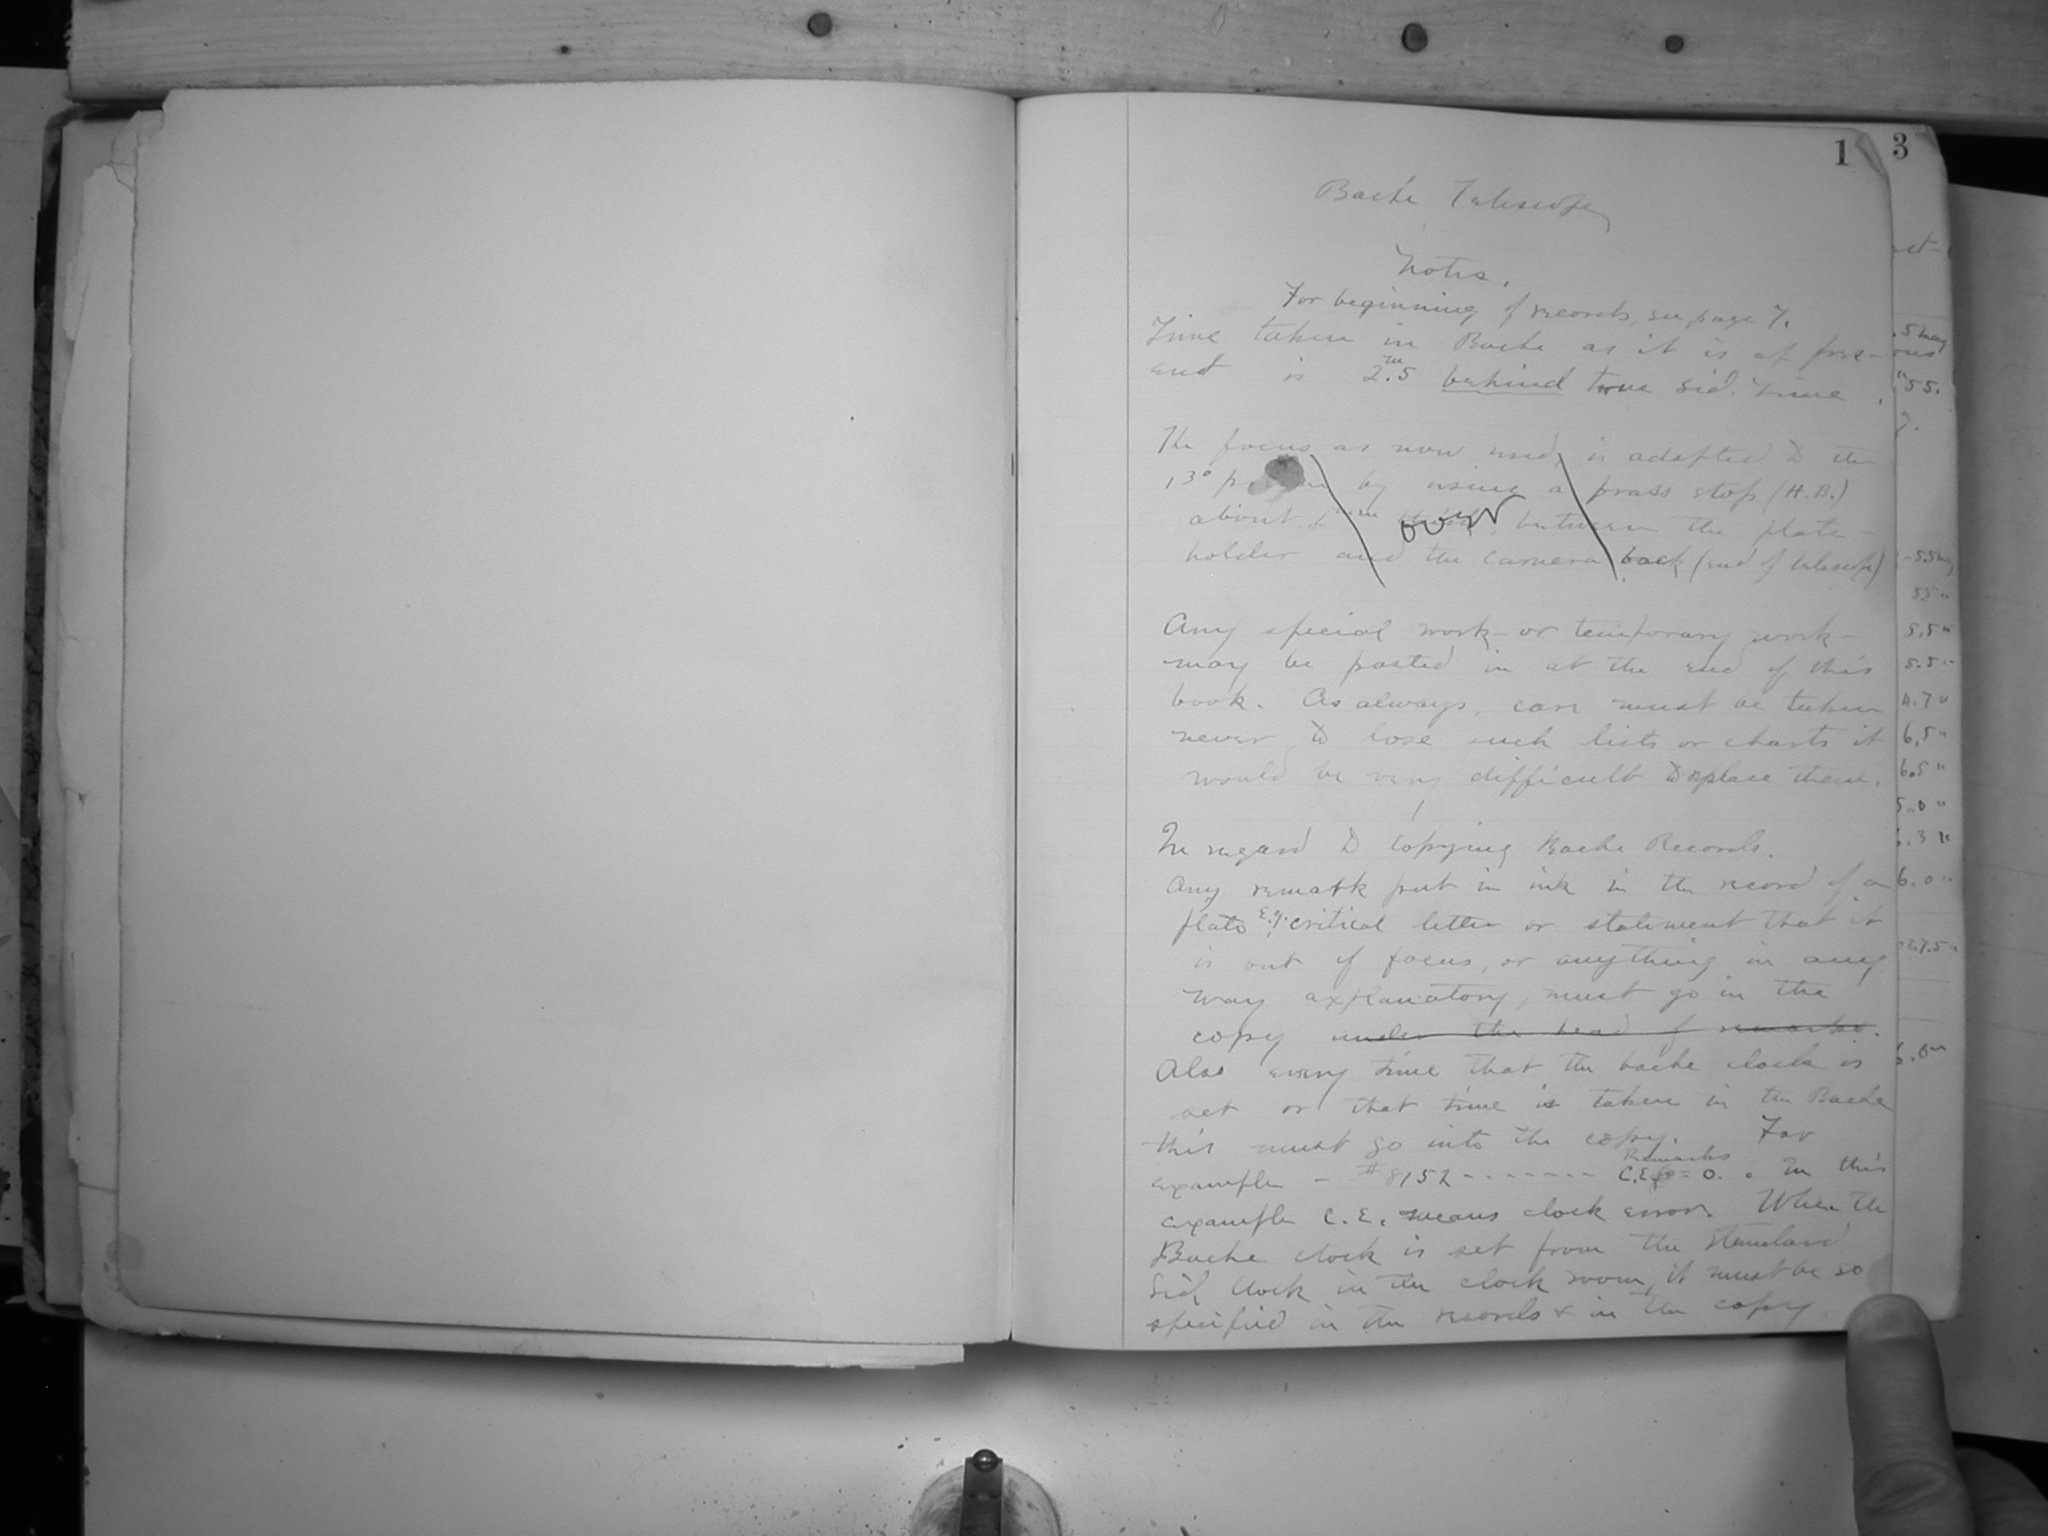 1
3
Bache Telescope
Notes.
For beginning of records, see page 7.
Time taken in Bache as it is at pres-
ent is 2.5 m behind true Sid. Time.
The focus as now used, is adapted to the
13° prism by using a brass stop (H.B.)
about between the plate-
over
holder and the camera back (end of telescope)
Any special work - or temporary work -
may be pasted in at the end of this
book. As always, care must be taken
never to lose such lists or charts it
would be very difficult to replace them.
In regard to copying Bache Records.
Any remark put in ink in the record of a
plate E.g. critical letter or statement that it
is out of focus, or anything in any
way explanatory, must go in the
copy under the head of remarks.
Also every time that the bache clock is
set or that time is taken in the Bache
this must go into the copy. For
Remarks
example - #8152 - - - - - - - C.E. = 0. In this
example C.E. means clock error. When the
Bache clock is set from the standard
Sid. Clock in the clock room, it must be so
specified in the records & in the copy.
55.
55 "
5.5 "
5.5 "
4.7 "
6.5 "
6.5 "
5.0 "
6.0 "